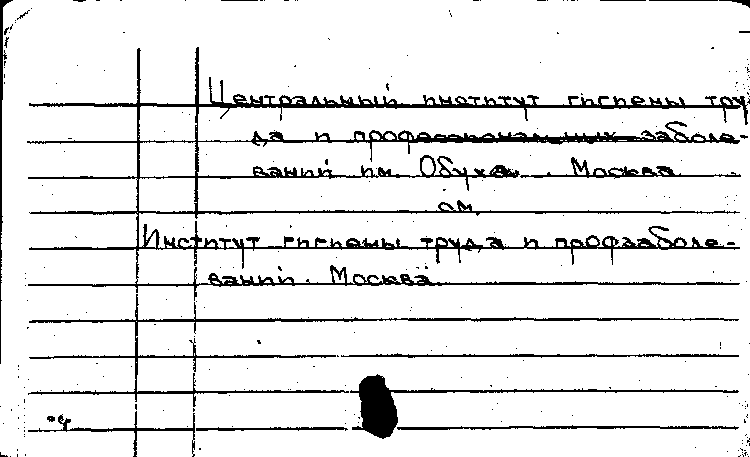 Центральный институт гигиены тру-
да и профессиональных заболе-
ваний им. Обуха. Москва
см.
Институт гигиены труда и профзаболе-
ваний. Москва.